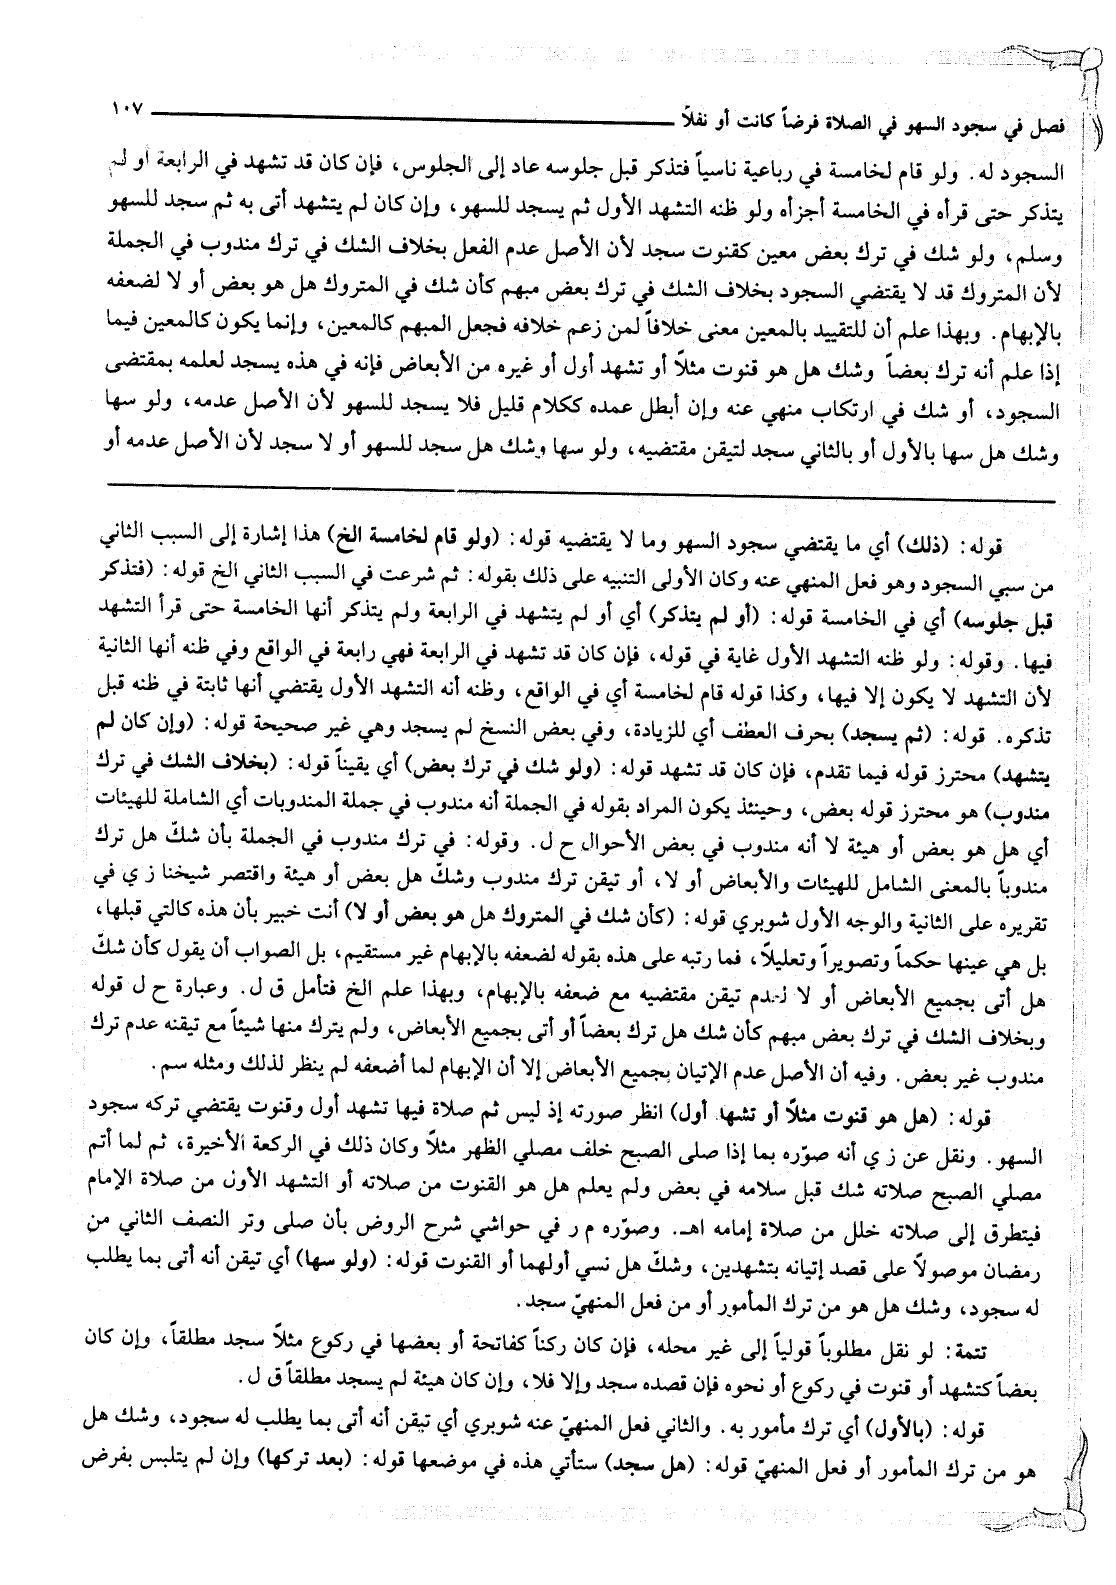 فصل في سجود السهو في الصلاة فرضاً كانت أو نفلاً ١٠٧
السجود له. ولو قام لخامسة في رباعية ناسياً فتذكر قبل جلوسه عاد إلى الجلوس، فإن كان قد تشهد في الرابعة أو لم
يتذكر حتى قرأه في الخامسة أجزأه ولو ظنه التشهد الأول ثم يسجد للسهو، وإن كان لم يتشهد أتى به ثم سجد للسهو
وسلم، ولو شك في ترك بعض معين كقنوت سجد لأن الأصل عدم الفعل بخلاف الشك في ترك مندوب في الجملة
لأن المتروك قد لا يقتضي السجود بخلاف الشك في ترك بعض مبهم كأن شك في المتروك هل هو بعض أو لا لضعفه
بالإبهام. وبهذا علم أن للتقييد بالمعين معنى خلافاً لمن زعم خلافه فجعل المبهم كالمعين، وإنما يكون كالمعين فيما
إذا علم أنه ترك بعضاً وشك هل هو قنوت مثلاً أو تشهد أول أو غيره من الأبعاض فإنه في هذه يسجد لعلمه بمقتضى
السجود، أو شك في ارتكاب منهي عنه وإن أبطل عمده ككلام قليل فلا يسجد للسهو لأن الأصل عدمه، ولو سها
وشك هل سها بالأول أو بالثاني سجد لتيقن مقتضيه، ولو سها وشك هل سجد للسهو أو لا سجد لأن الأصل عدمه أو
قوله: (ذلك) أي ما يقتضي سجود السهو وما لا يقتضيه قوله: (ولو قام لخامسة الخ) هذا إشارة إلى السبب الثاني
من سببي السجود وهو فعل المنهي عنه وكان الأولى التنبيه على ذلك بقوله: ثم شرعت في السبب الثاني الخ قوله: (فتذكر
قبل جلوسه) أي في الخامسة قوله: (أو لم يتذكر) أي أو لم يتشهد في الرابعة ولم يتذكر أنها الخامسة حتى قرأ التشهد
فيها. وقوله: ولو ظنه التشهد الأول غاية في قوله، فإن كان قد تشهد في الرابعة فهي رابعة في الواقع وفي ظنه أنها الثانية
لأن التشهد لا يكون إلا فيها، وكذا قوله قام لخامسة أي في الواقع، وظنه أنه التشهد الأول يقتضي أنها ثابتة في ظنه قبل
تذكره. قوله: (ثم يسجد) بحرف العطف أي للزيادة، وفي بعض النسخ لم يسجد وهي غير صحيحة قوله: (وإن كان لم
يتشهد) محترز قوله فيما تقدم، فإن كان قد تشهد قوله: (ولو شك في ترك بعض) أي يقيناً قوله: (بخلاف الشك في ترك
مندوب) هو محترز قوله بعض، وحينئذ يكون المراد بقوله في الجملة أنه مندوب في جملة المندوبات أي الشاملة للهيئات
أي هل هو بعض أو هيئة لا أنه مندوب في بعض الأحوال ح ل. وقوله: في ترك مندوب في الجملة بأن شكّ هل ترك
مندوباً بالمعنى الشامل للهيئات والأبعاض أو لا، أو تيقن ترك مندوب وشكّ هل بعض أو هيئة واقتصر شيخنا ز ي في
تقريره على الثانية والوجه الأول شوبري قوله: (كأن شك في المتروك هل هو بعض أو لا) أنت خبير بأن هذه كالتي قبلها،
بل هي عينها حكماً وتصويراً وتعليلاً، فما رتبه على هذه بقوله لضعفه بالإبهام غير مستقيم، بل الصواب أن يقول كأن شكّ
هل أتى بجميع الأبعاض أو لا لعدم تيقن مقتضيه مع ضعفه بالإبهام، وبهذا علم الخ فتأمل ق ل. وعبارة ح ل قوله
وبخلاف الشك في ترك بعض مبهم كأن شك هل ترك بعضاً أو أتى بجميع الأبعاض، ولم يترك منها شيئاً مع تيقنه عدم ترك
مندوب غير بعض. وفيه أن الأصل عدم الإتيان بجميع الأبعاض إلا أن الإبهام لما أضعفه لم ينظر لذلك ومثله سم.
قوله: (هل هو قنوت مثلاً أو تشهد أول) انظر صورته إذ ليس ثم صلاة فيها تشهد أول وقنوت يقتضي تركه سجود
السهو. ونقل عن ز ي أنه صوّره بما إذا صلى الصبح خلف مصلي الظهر مثلاً وكان ذلك في الركعة الأخيرة، ثم لما أتم
مصلي الصبح صلاته شك قبل سلامه في بعض ولم يعلم هل هو القنوت من صلاته أو التشهد الأول من صلاة الإمام
فيتطرق إلى صلاته خلل من صلاة إمامه اهـ. وصوّره م ر في حواشي شرح الروض بأن صلى وتر النصف الثاني من
رمضان موصولاً على قصد إتيانه بتشهدين، وشكّ هل نسي أولهما أو القنوت قوله: (ولو سها) أي تيقن أنه أتى بما يطلب
له سجود، وشك هل هو من ترك المأمور أو من فعل المنهيّ سجد.
تتمة: لو نقل مطلوباً قولياً إلى غير محله، فإن كان ركناً كفاتحة أو بعضها في ركوع مثلاً سجد مطلقاً، وإن كان
بعضاً كتشهد أو قنوت في ركوع أو نحوه فإن قصده سجد وإلا فلا، وإن كان هيئة لم يسجد مطلقاً ق ل.
قوله: (بالأول) أي ترك مأمور به. والثاني فعل المنهيّ عنه شوبري أي تيقن أنه أتى بما يطلب له سجود، وشك هل
هو من ترك المأمور أو فعل المنهيّ قوله: (هل سجد) ستأتي هذه في موضعها قوله: (بعد تركها) وإن لم يتلبس بفرض